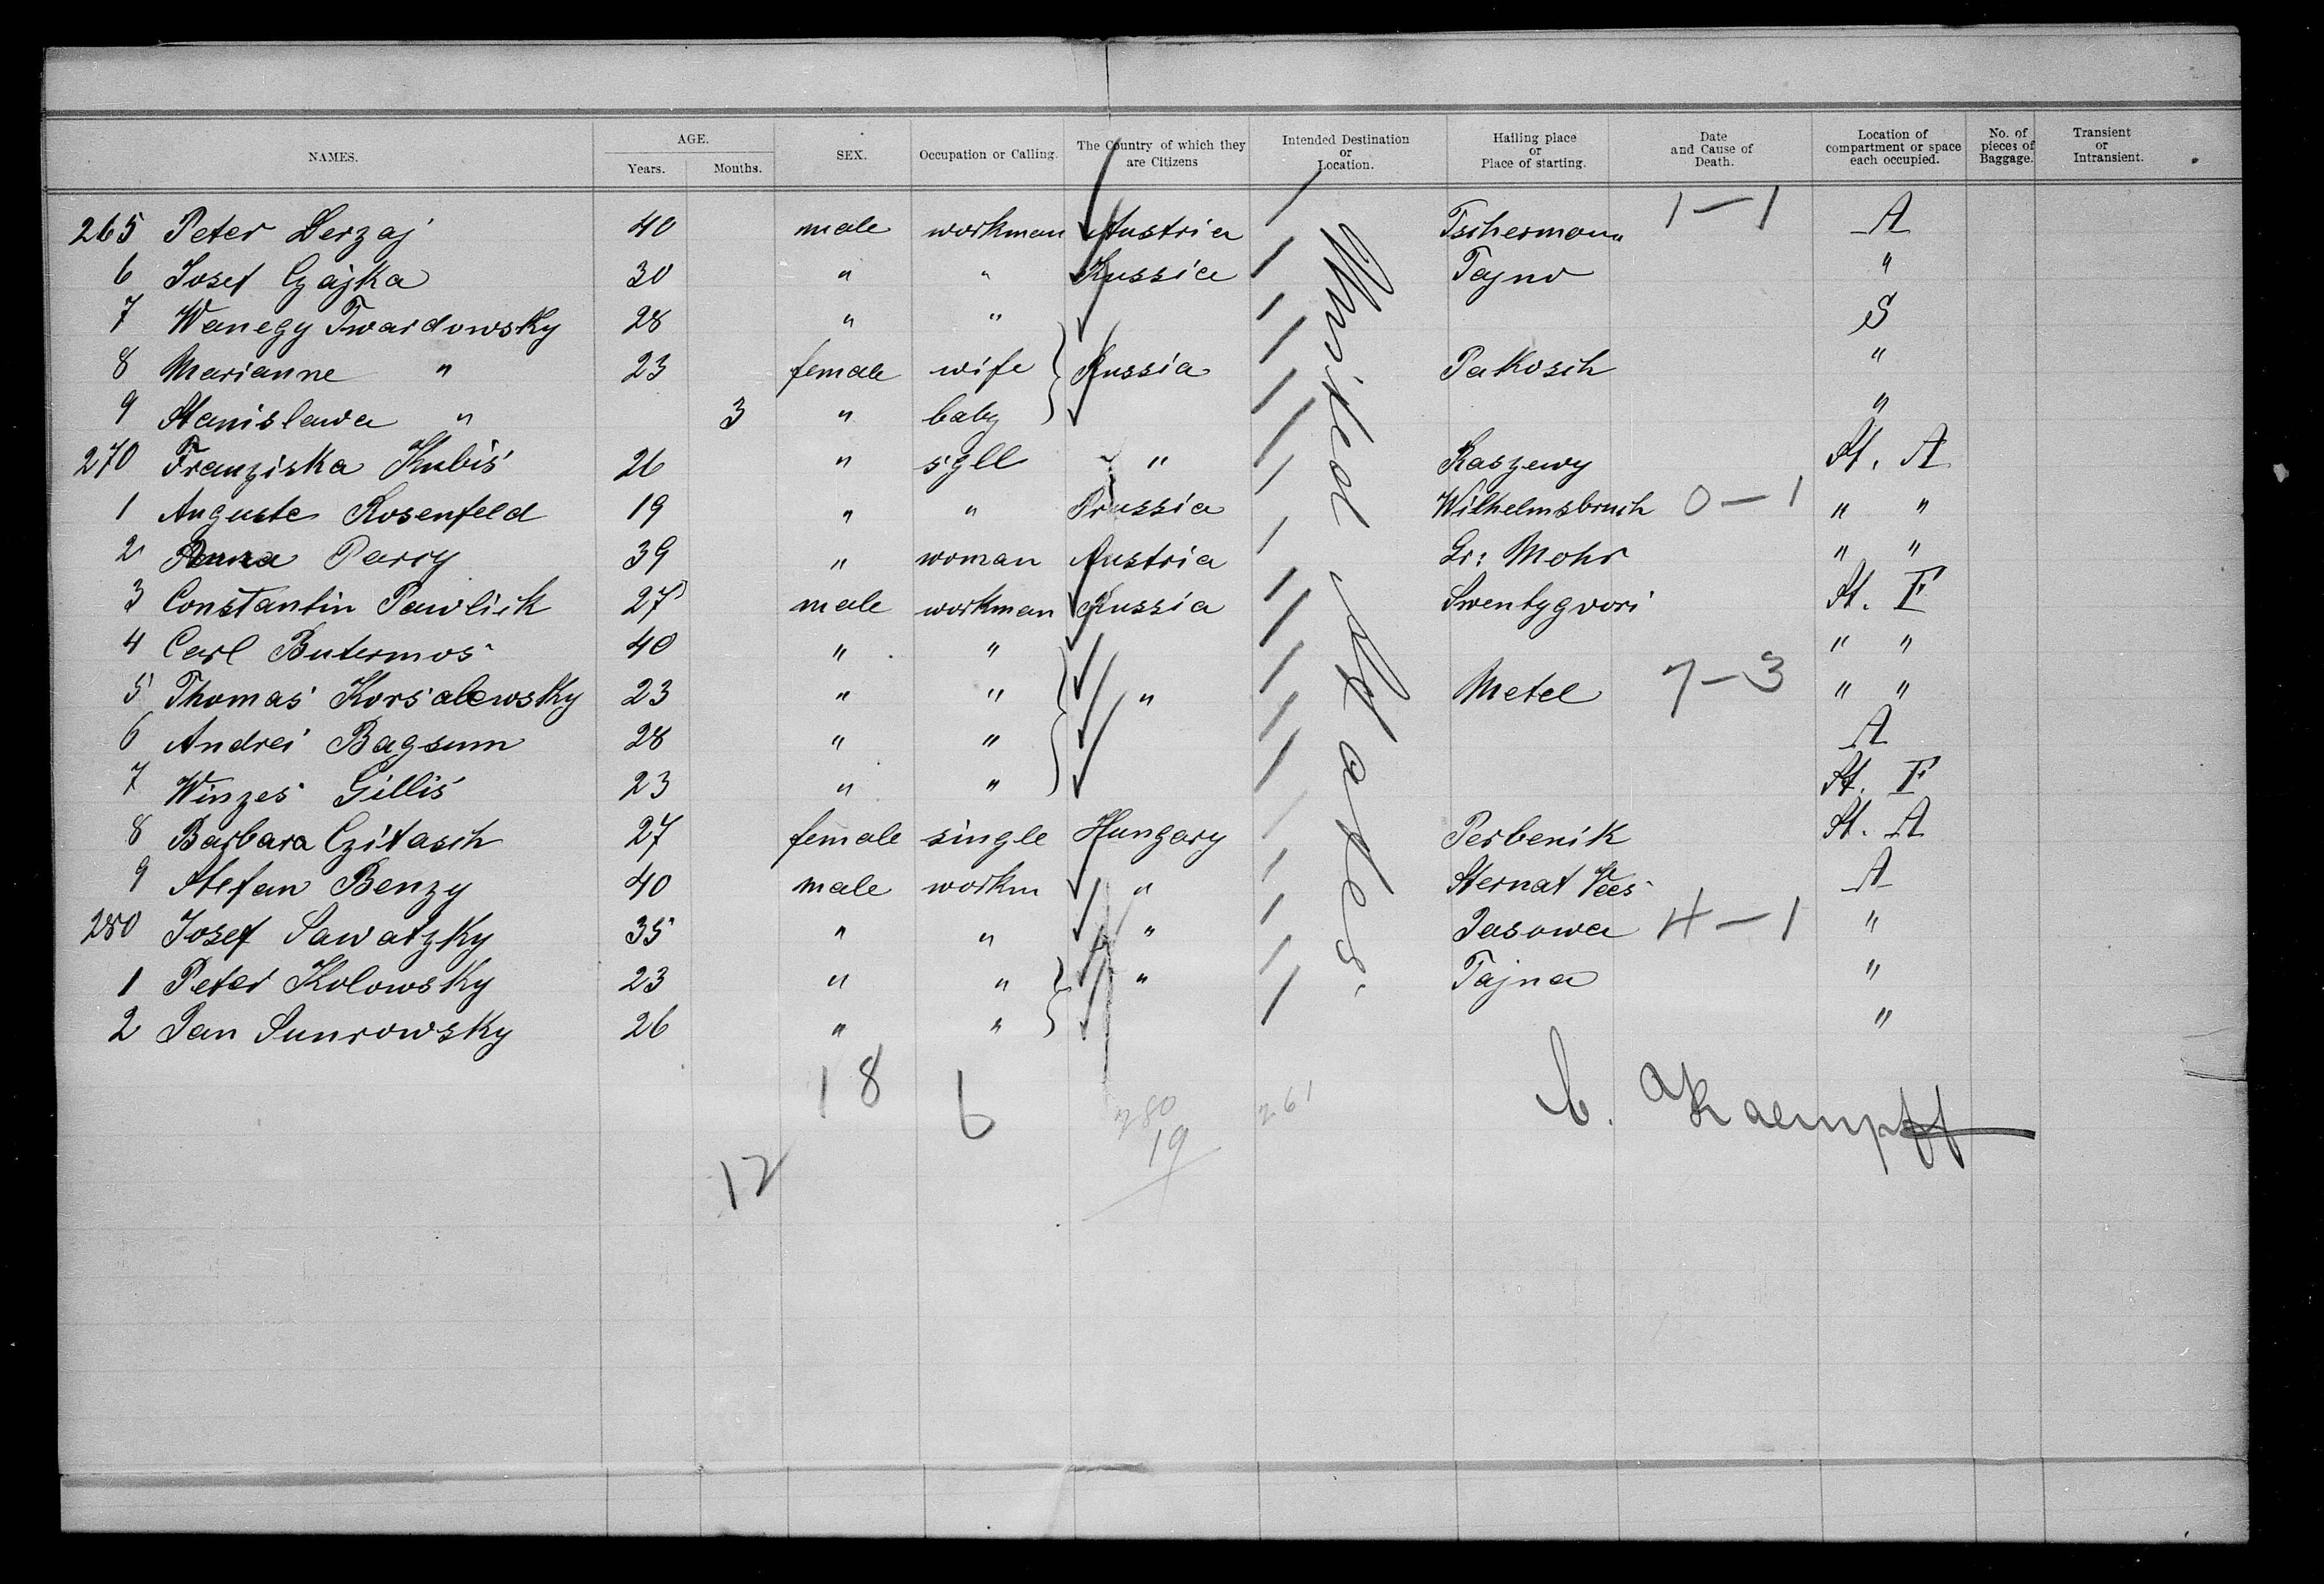 NAMES. AGE. Years. Months. SEX. Occupation or Calling. The Country of which they are Citizens Intended Destination or Location. Hailing place or Place of starting. Date and Cause of Death. Location of compartment or space each occupied. No. of pieces of Baggage. Transient or Intransient.
265 Peter Derzaj 40 male workman Austria Tschermann 1-1 A
6 Josef Czajka 30 " " Russia Tajno "
7 Wanegy Twardowsky 28 " " S
8 Marianne " 23 female wife Russia Pakosch "
9 Stanislawa " 3 " baby "
270 Franziska Kubis 26 " sgll " Raszewy St. A
1 Auguste Rosenfeld 19 " " Prussia Wilhelmsbruch 0-1 " "
2 Anna Parry 39 " woman Austria Gr: Mohr " "
3 Constantin Pawlick 27 male workman Russia Swentygvori St. F
4 Carl Butermos 40 " " " "
5 Thomas Korsalewsky 23 " " " Metel 7-3 " "
6 Andrei Bagsum 28 " " A
7 Winzes Gillis 23 " " St. F
8 Barbara Czitasch 27 female single Hungary Perbenik St. A
9 Stefan Benzy 40 male workm " Sternat Vees A
280 Josef Sawatzky 35 " " " Jasowa 4-1 "
1 Peter Kolowsky 23 " " " Tajna "
2 Jan Sunrowsky 26 " " "
United States.
18 6 280 261
19
12
C. Kaempff